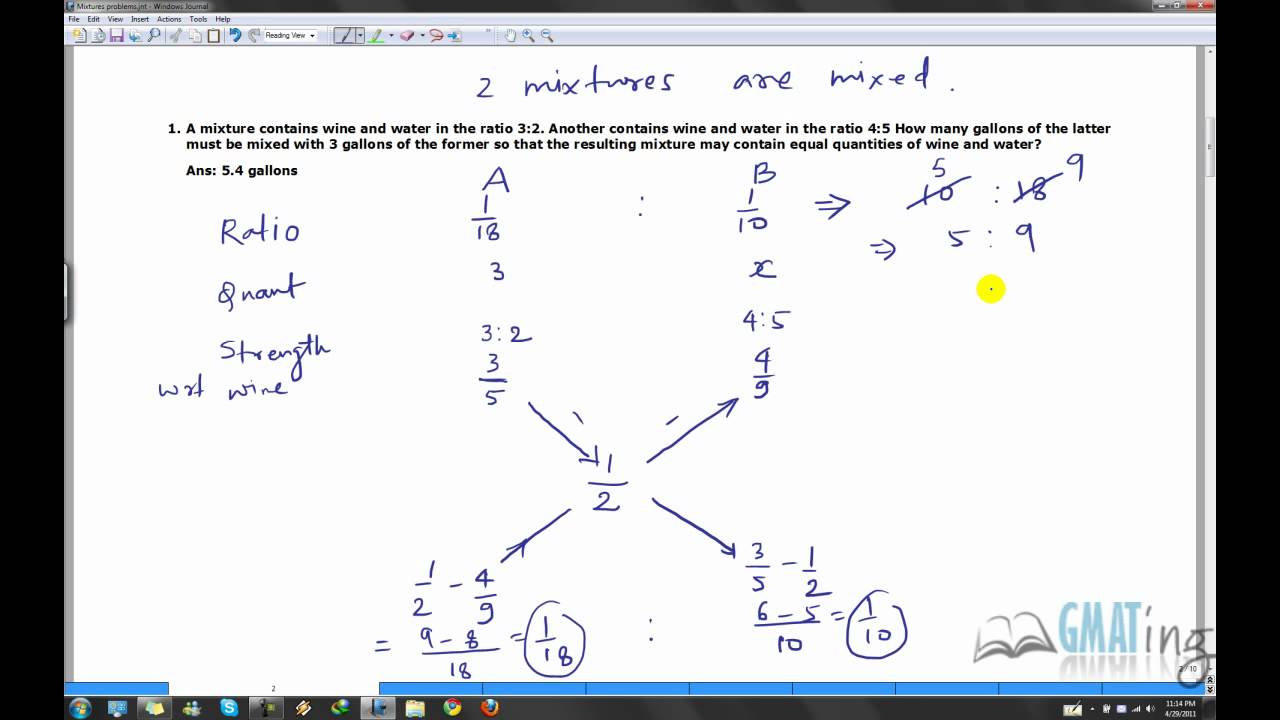 Mixtures problems.jnt - Windows Journal
File Edit View Insert Actions Tools Help
Reading View
2 mixtures are mixed.
1. A mixture contains wine and water in the ratio 3:2. Another contains wine and water in the ratio 4:5 How many gallons of the latter
must be mixed with 3 gallons of the former so that the resulting mixture may contain equal quantities of wine and water?
Ans: 5.4 gallons
A B 5 9
Ratio 1/18 : 1/10 ⇒ 10 : 18
⇒ 5 : 9
Quant 3 x
3:2 4:5
Strength
wrt wine 3/5 4/9
1/2
1/2 - 4/9 3/5 - 1/2
= 9-8/18 = 1/18 : 6-5/10 = 1/10
GMATing
2 / 10
2
11:14 PM
4/29/2011